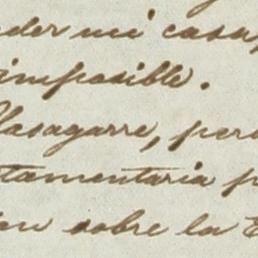 der mi casa,
imposible.
lasagarre, pero
tamentaria p
en sobre la E